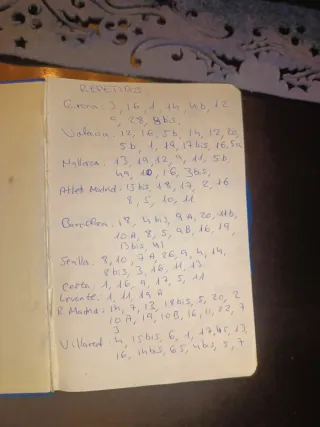 REPETIDOS
Girona: 3, 16, 1, 14, 4b, 12
9, 28, 8bis,
Valencia: 12, 16, 5b, 14, 12, 20,
5b, 1, 19, 17bis, 16, 5a
Mallorca: 13, 19, 12, 9, 11, 5b,
4a, 10, 16, 3bis,
Atlet Madrid: 13bis, 18, 17, 2, 16
8, 5, 10, 11
Barcelona: 18, 4bis, 9A, 20, 11b,
10A, 8, 5, 9B, 16, 19,
13bis, 41
Sevilla: 8, 10, 7A, 26, 9, 4, 14,
8bis, 3, 16, 11, 13
Celta: 1, 16, 9, 17, 5, 11
Levante: 1, 11, 19A
R Madrid: 14, 7, 13, 18bis, 5, 20, 2
10A, 19, 10B, 16, 11, 22, 7
3
Villareal: 4, 15bis, 6, 1, 17, 45, 13,
16, 14bis, 65, 4bis, 5, 7